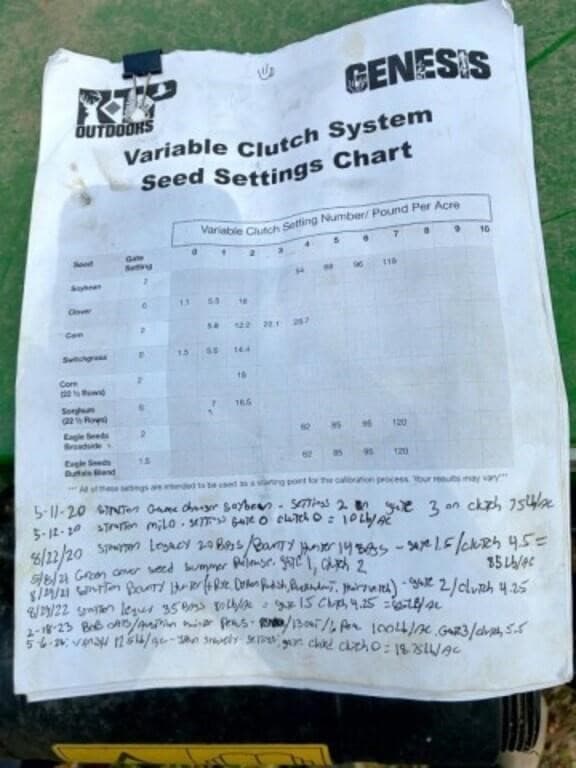 RTP
OUTDOORS
GENESIS
Variable Clutch System
Seed Settings Chart
Variable Clutch Setting Number/ Pound Per Acre
Seed Gate Setting 0 1 2 3 4 5 6 7 8 9 10
Soybean 2 54 68 96 118
Clover 0 1.1 5.5 18
Corn 2 5.8 12.2 22.1 25.7
Switchgrass 0 1.5 5.5 14.4
Corn (22 ½ Rows) 2 15
Sorghum (22 ½ Rows) 0 7 16.5
Eagle Seeds Broadside 2 62 85 95 120
Eagle Seeds Buffalo Blend 1.5 62 85 95 120
*** All of these settings are intended to be used as a starting point for the calibration process. Your results may vary***
5-11-20 Stratton Game changer Soybean - Settings 2 on gate 3 on clutch 75lb/AC
5-12-20 Stratton milo - Settings Gate 0 Clutch 0 = 10lb/AC
8/22/20 Stratton Legacy 20 Bags / Bounty Hunter 14 Bags - gate 1.5 / clutch 4.5 = 85lb/AC
5/8/21 Green cover seed Summer Release. gate 1, Clutch 2
8/29/21 Stratton Bounty Hunter - gate 2/clutch 4.25
8/29/22 Stratton legacy 35 Bags 80lb/AC = gate 1.5 Clutch 4.25
2-18-23 Bob oats/Austrian winter Peas - 100lb/AC. Gate 3/clutch 5.5
12.5lb/AC - gate clutch 0 = 18.75lb/AC